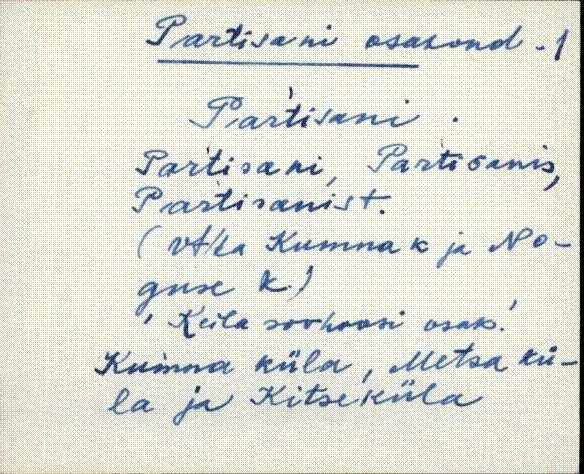 Partisani osakond -1
Par'tisani.
Par'tisani, Par'tisanis,
Par'tisanist.
(vt ka Kumna k ja No-
guse k.)
' Keila sovhoosi osak.'
Kumna küla, Metsa kü-
la ja Kitseküla